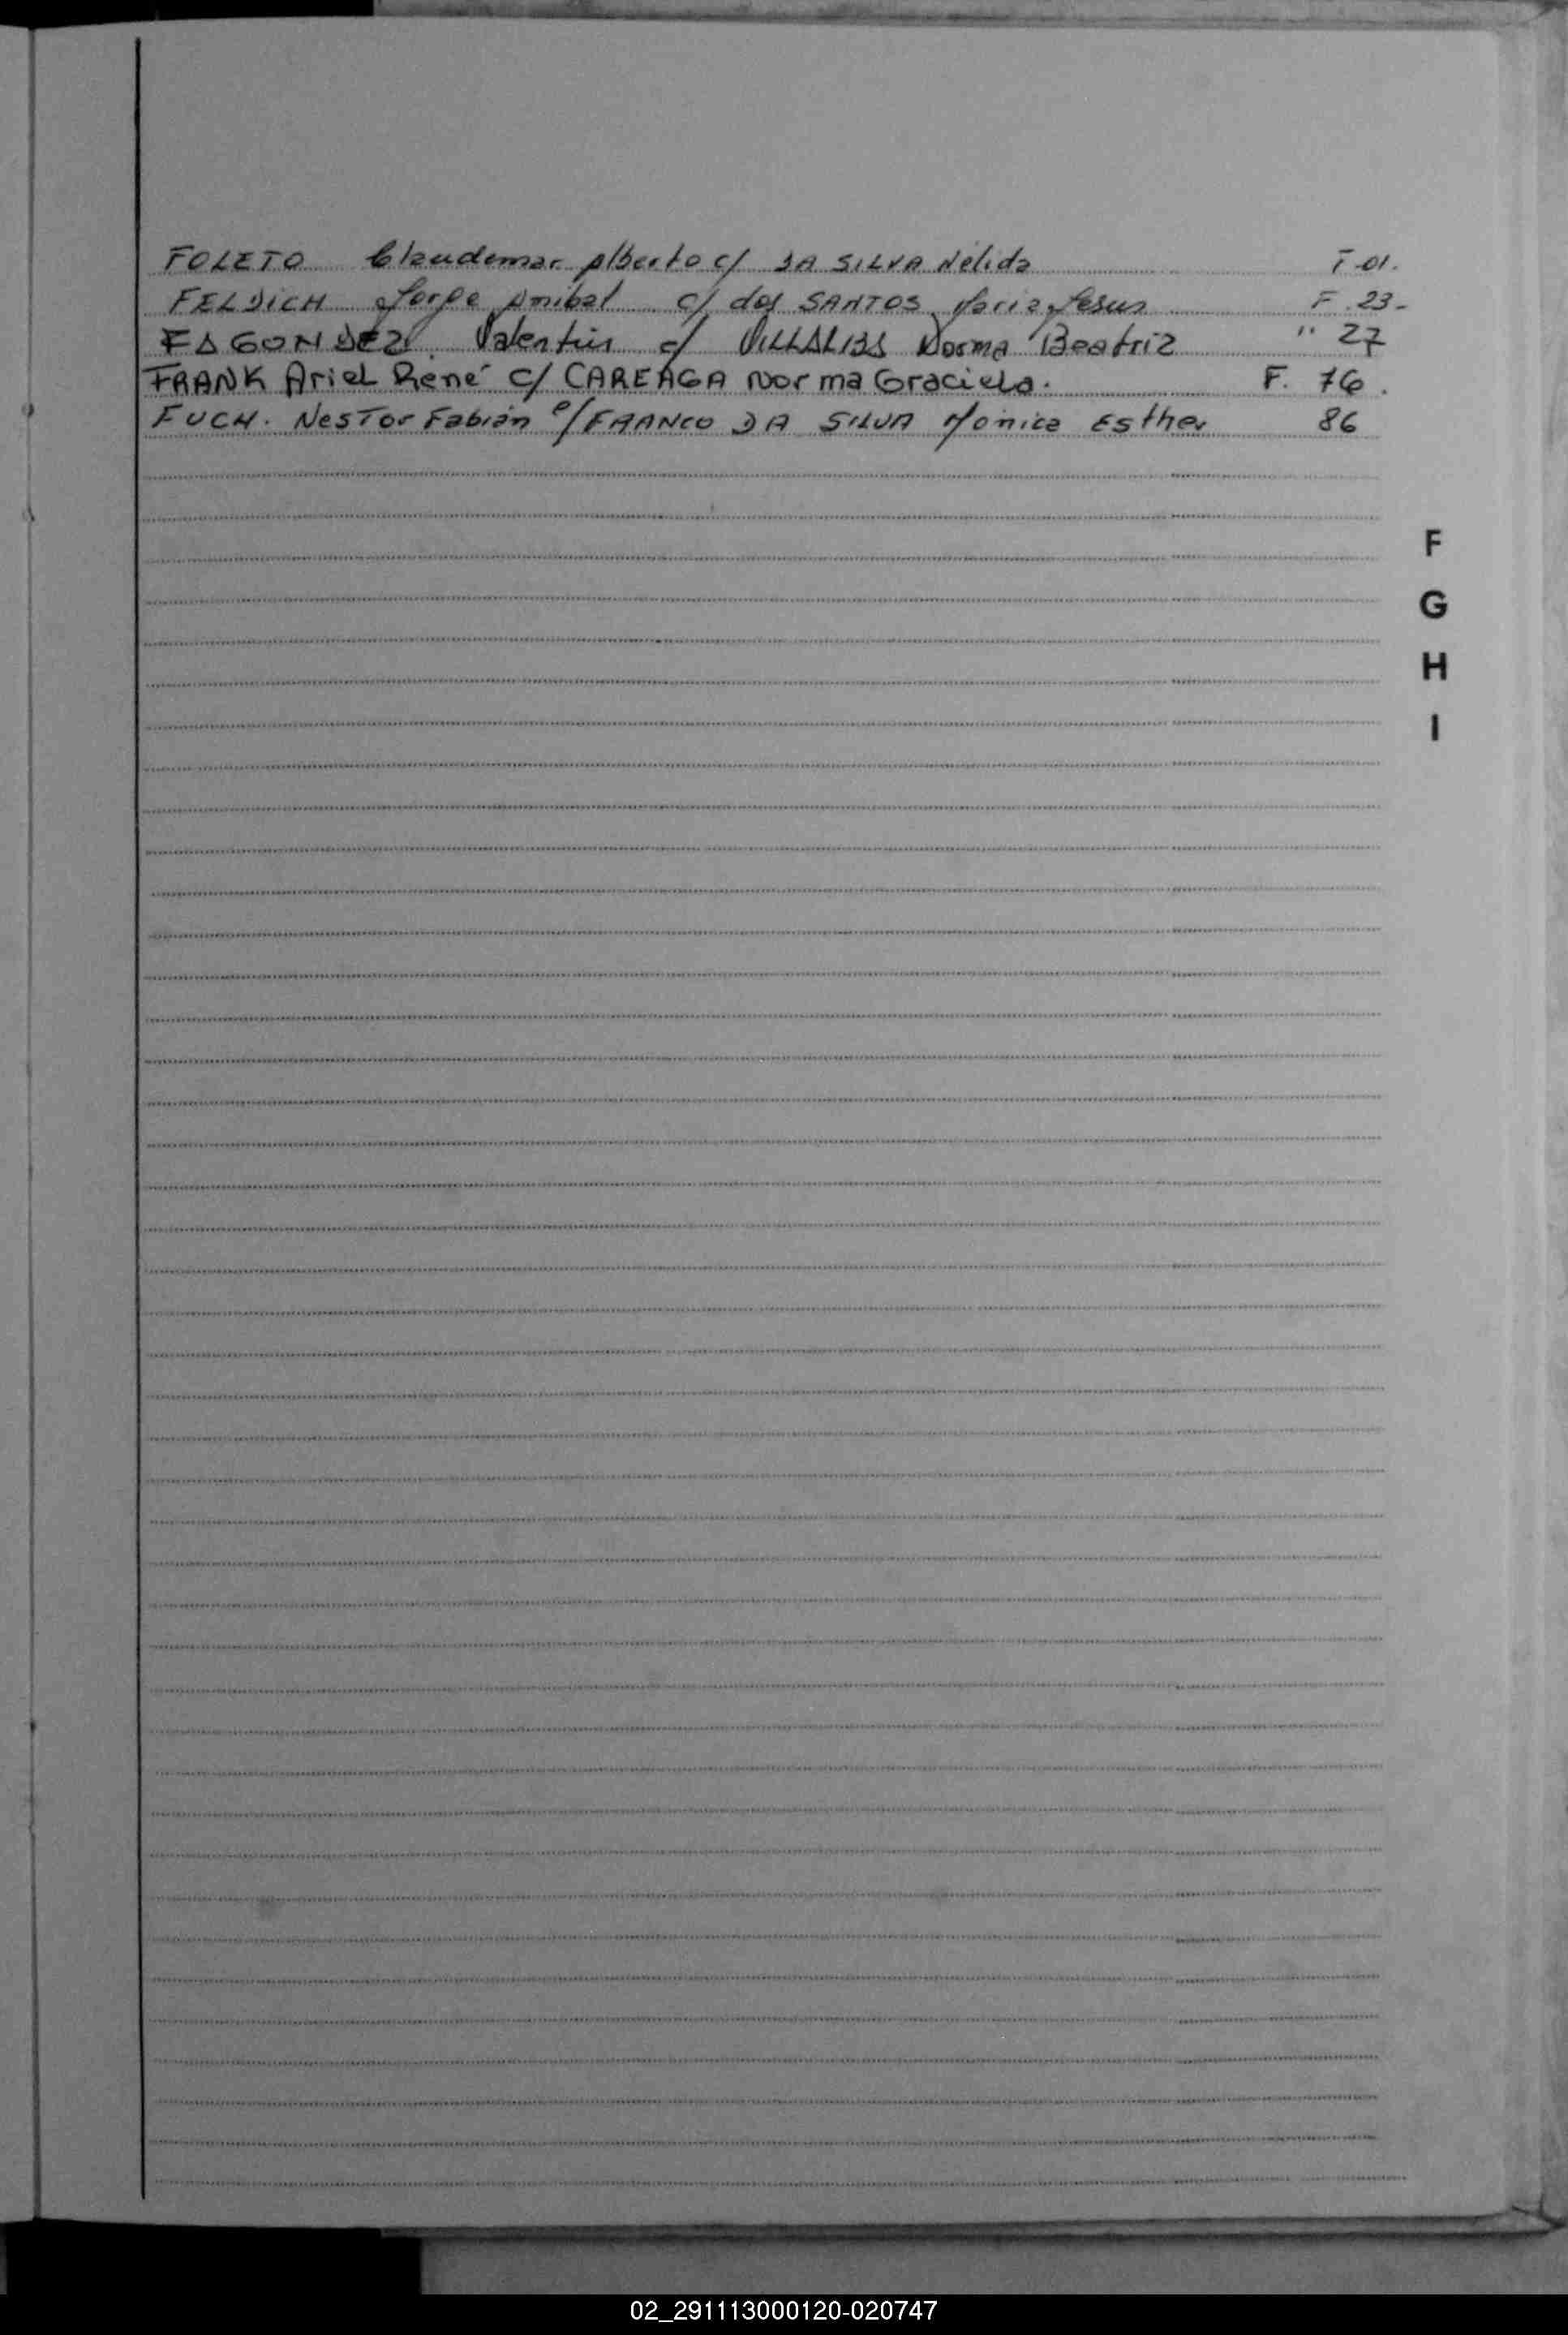 FOLETO Claudemar Alberto c/ DA SILVA Nélida F-01.
FELDICH Jorge Anibal c/ dos SANTOS Maria Jesus F. 23-
FAGONDEZ. Valentin c/ VILLALIBS Norma Beatriz " 27
FRANK Ariel René c/ CAREAGA Norma Graciela. F. 76.
FUCH. Nestor Fabián c/ FRANCO DA SILVA Mónica Esther 86
F
G
H
I
02_291113000120-020747